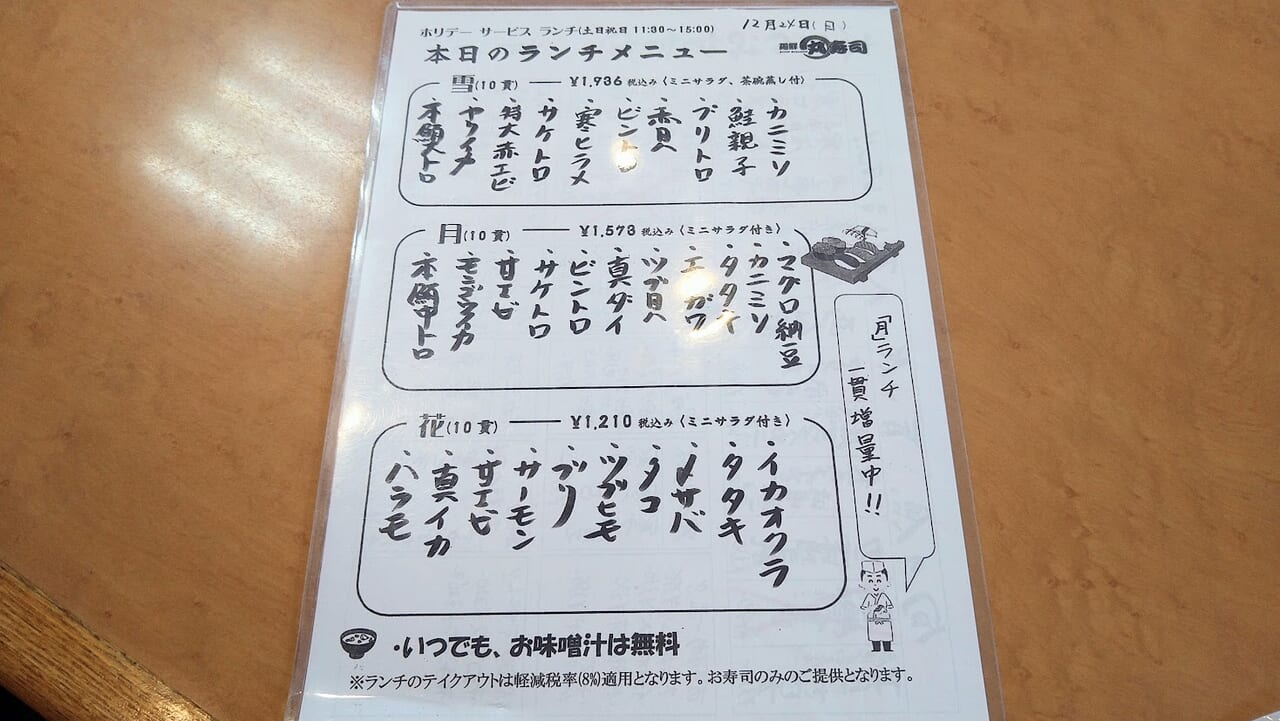 ホリデー サービス ランチ(土日祝日 11:30～15:00)
12月24日(日)
本日のランチメニュー
海鮮 丸 寿司
雪(10貫) ¥1,936 税込み〈ミニサラダ、茶碗蒸し付〉
・本鮪大トロ
・ヤリイカ
・特大赤エビ
・サケトロ
・寒ヒラメ
・ビントロ
・赤貝
・ブリトロ
・鮭親子
・カニミソ
月(10貫) ¥1,573 税込み〈ミニサラダ付き〉
・本鮪中トロ
・モンゴウイカ
・甘エビ
・サケトロ
・ビントロ
・真ダイ
・ツブ貝
・エンガワ
・タタキ
・カニミソ
・マグロ納豆
「月」ランチ
一貫増量中!!
花(10貫) ¥1,210 税込み〈ミニサラダ付き〉
・ハラモ
・真イカ
・甘エビ
・サーモン
・ブリ
・ツブヒモ
・タコ
・〆サバ
・タタキ
・イカオクラ
・いつでも、お味噌汁は無料
※ランチのテイクアウトは軽減税率(8%)適用となります。お寿司のみのご提供となります。